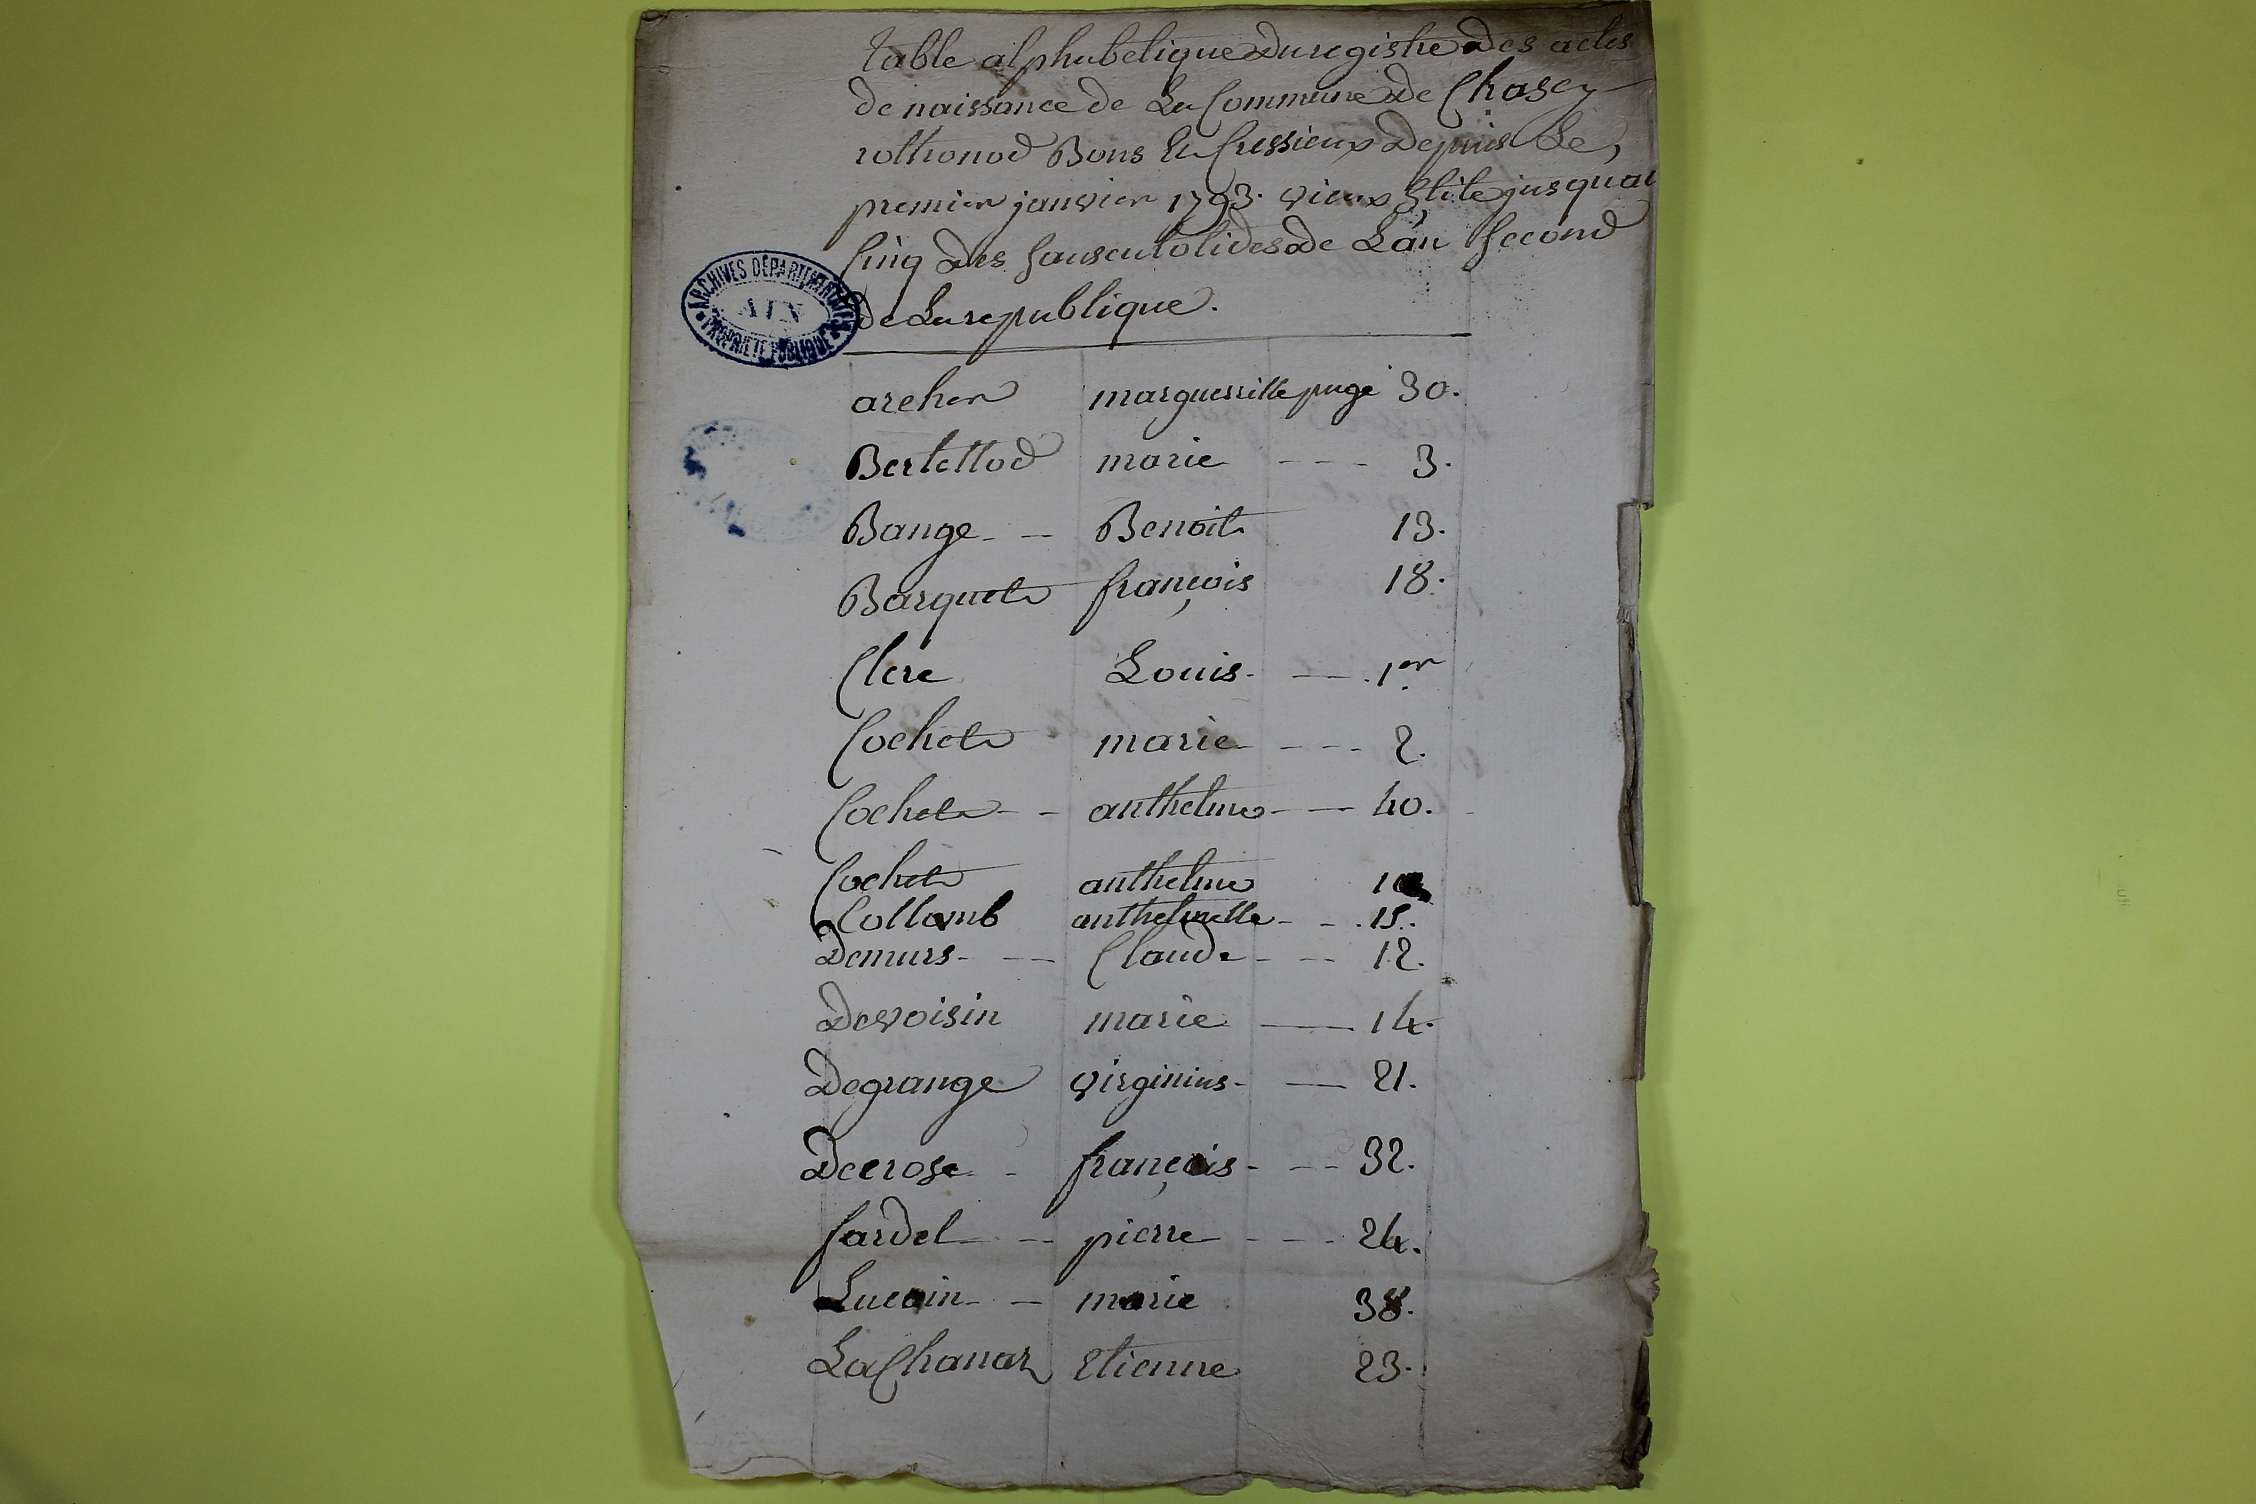 table alphabetique du registre des actes
de naissance de La Commune de Chasey
rothonod Bons Et Cressieux Depuis Le
premier janvier 1793. vieux Stile jusquau
Cinq des sansculotides de L'an second
de La republique.
ARCHIVES DÉPARTEMENTALES
AIN
PROPRIÉTÉ PUBLIQUE
archer marguerritte page 30.
Bertettod marie --- 3.
Bange -- Benoit 13.
Barquet françois 18.
Clerc Louis - -- 1er
Cochet marie --- 2.
Cochet -- anthelme -- 40.
Cochet anthelme
Collomb anthelmette -- 15.
Demurs -- Claude -- 12.
Devoisin marie -- 14.
Degrange virginius - -- 21.
Decrose - françois --- 32.
fardel -- pierre --- 24.
Lucain -- marie 38.
LaChanaz Etienne 23.